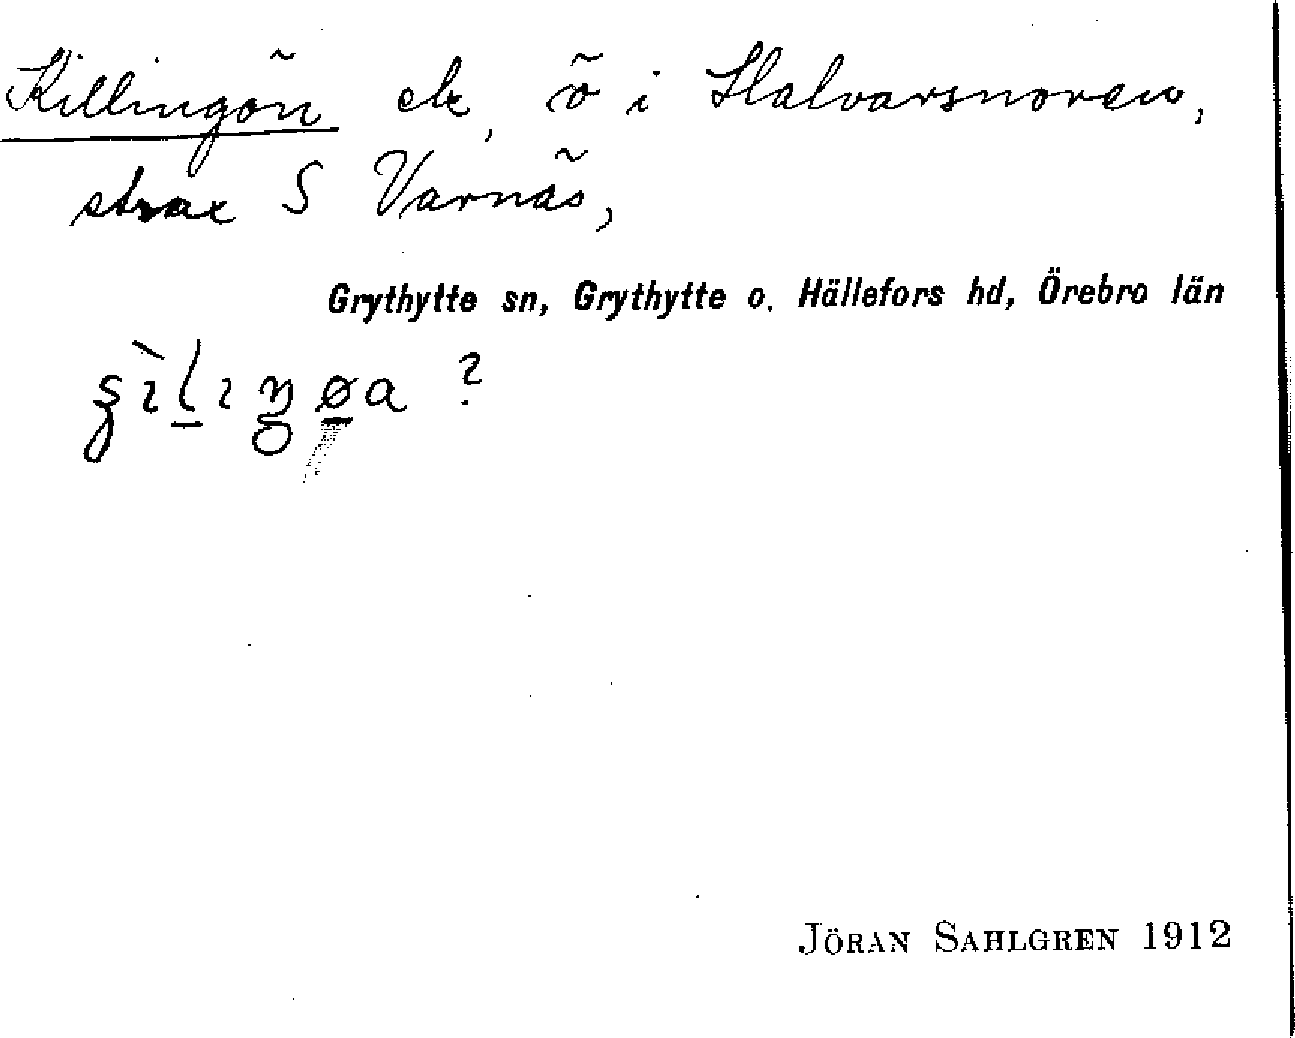 Killingön ek, ö i Halvarsnoren,
strax S Varnäs,
Grythytte sn, Grythytte o. Hällefors hd, Örebro län
?
JÖRAN SAHLGREN 1912